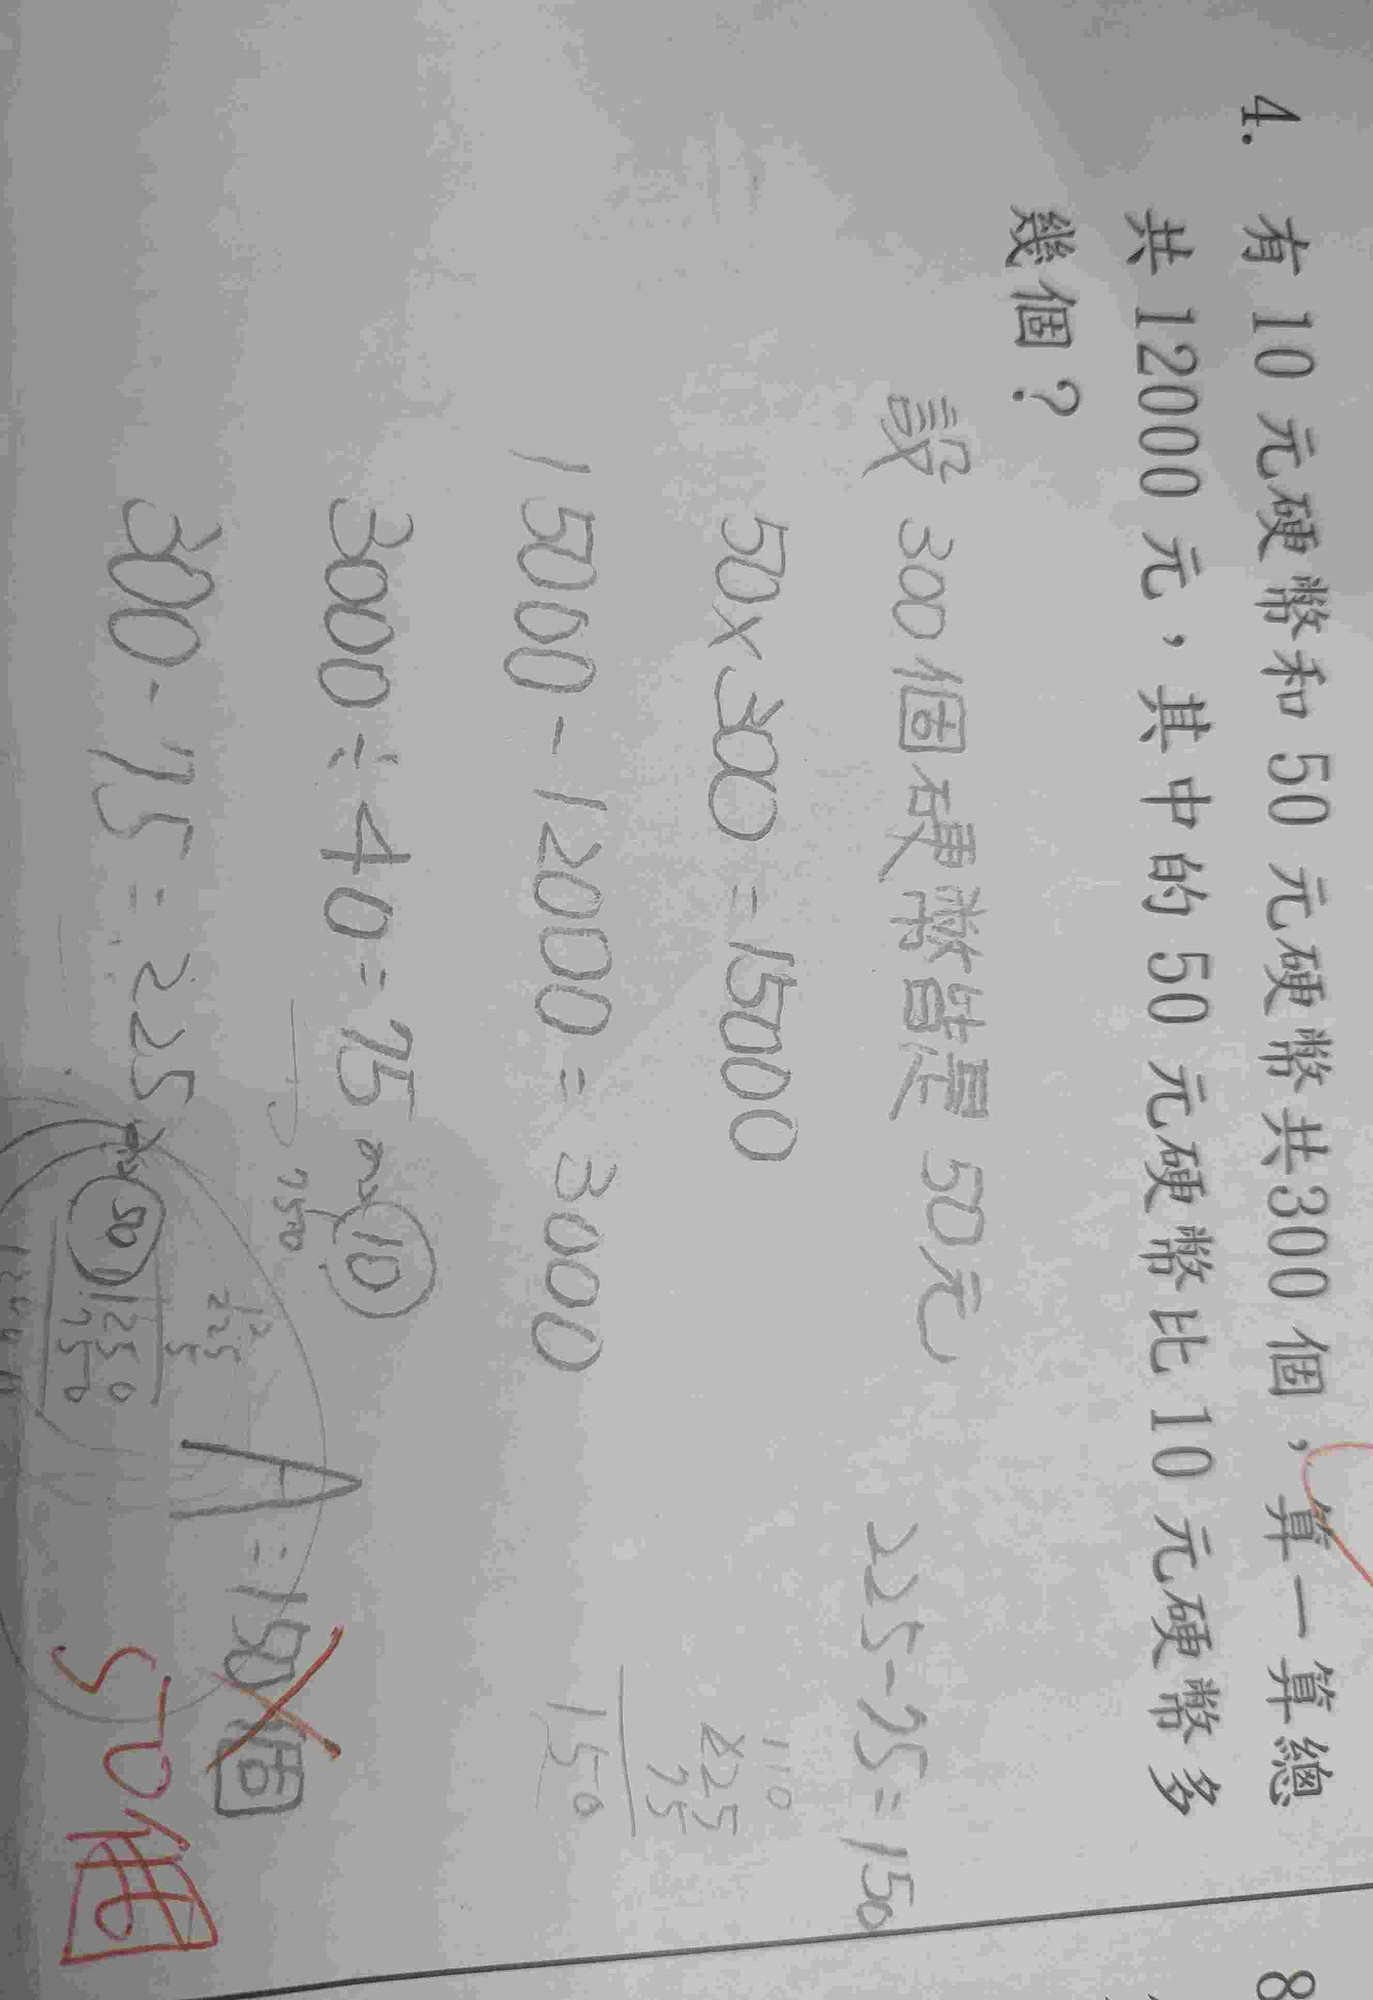 4. 有 10 元硬幣和 50 元硬幣共300 個，算一算總
共 12000 元，其中的 50 元硬幣比 10 元硬幣多
幾個？
設 300個硬幣皆是 50元
225-75=150
50×300=15000
110
225
75
150
15000-12000=3000
3000÷40=75 10
7500
300-75=225 50
12
225
5
11250
750
A=150個
50個
8